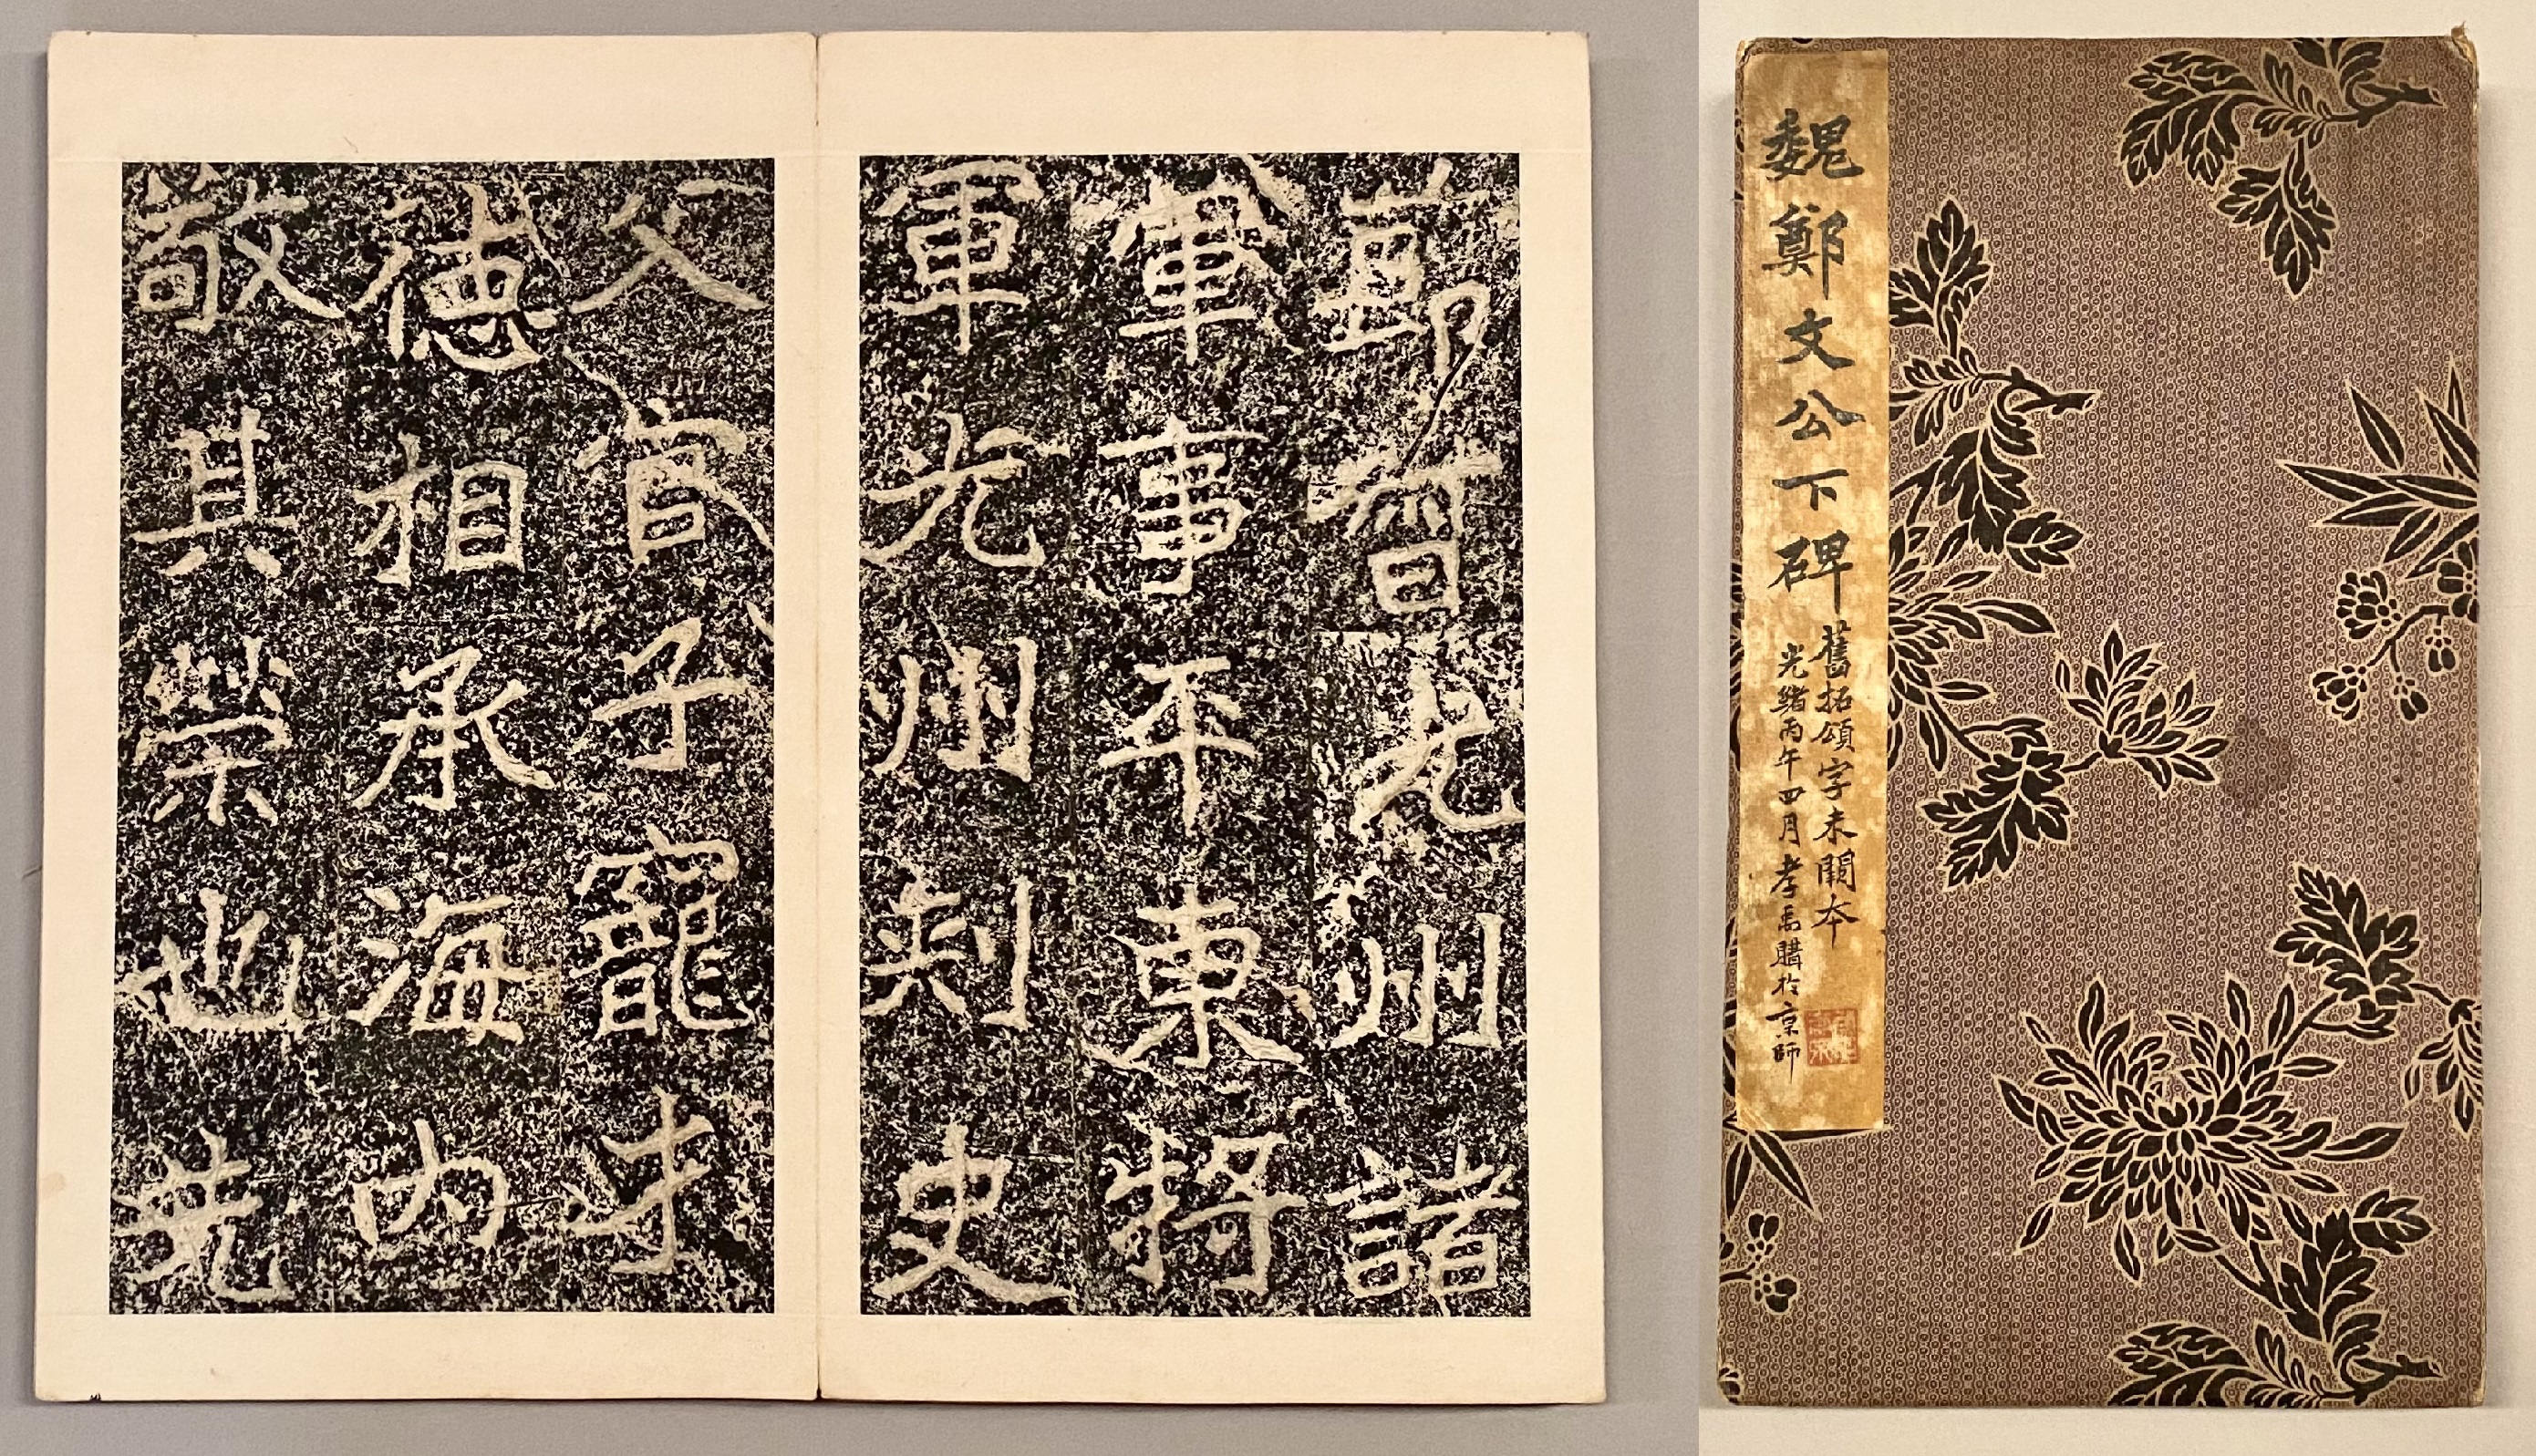 都督光州諸
軍事平東將
軍光州刺史
父官子寵才
德相承海內
敬其榮也先
魏鄭文公下碑
舊拓頌字未闕本
光緒丙午四月孝禹購於京師